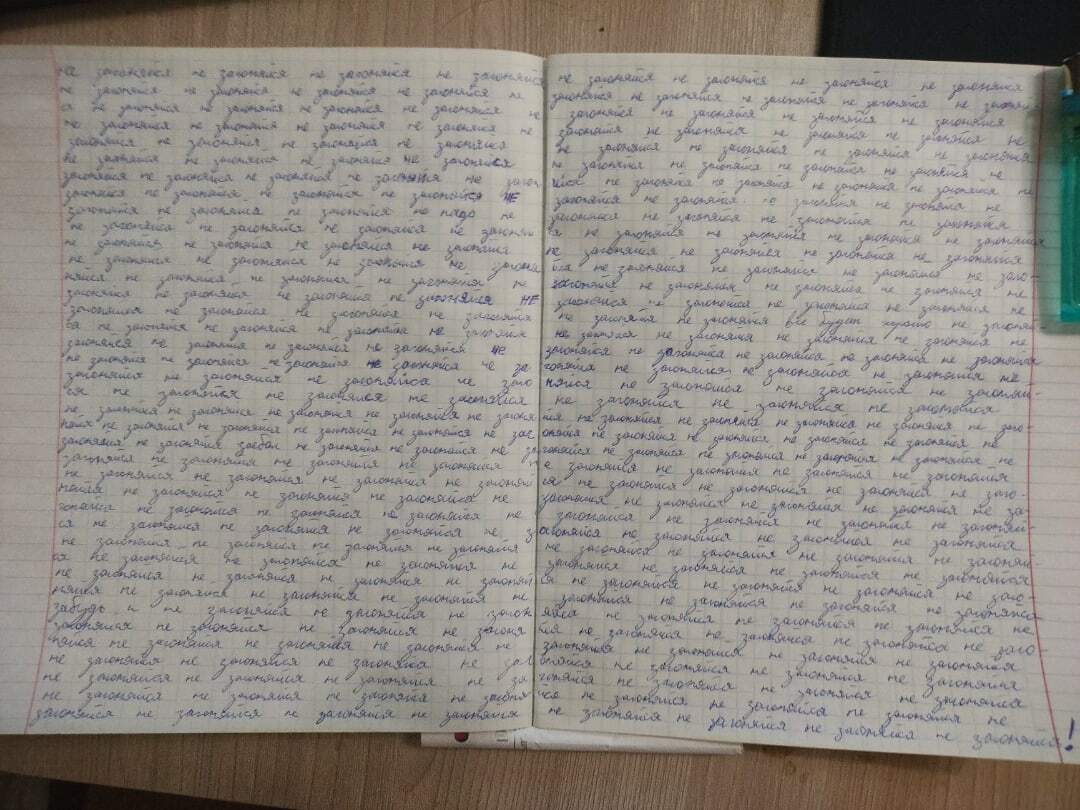 не загоняйся не загоняйся не загоняйся не загоняйся
не загоняйся не загоняйся не загоняйся не загоняйся не
не загоняйся не загоняйся не загоняйся не загоняйся
не загоняйся не загоняйся не загоняйся не загоняйся не
загоняйся не загоняйся не загоняйся не загоняйся
не загоняйся не загоняйся не загоняйся не загоняйся
загоняйся не загоняйся не загоняйся не загоняйся не загон
загоняйся не загоняйся не загоняйся не загоняйся не
загоняйся не загоняйся не загоняйся не надо не
не загоняйся не загоняйся не загоняйся не загоняй
не загоняйся не загоняйся не загоняйся не загоняйся
не загоняйся не загоняйся не загоняйся не загоня
няйся не загоняйся не загоняйся не загоняйся не
загоняйся не загоняйся не загоняйся не загоняйся не
загоняйся не загоняйся не загоняйся не загоняйся
не загоняйся не загоняйся не загоняйся не загоняйся
загоняйся не загоняйся не загоняйся не загоняйся не
не загоняйся не загоняйся не загоняйся не загоняйся не за
загоняйся не загоняйся не загоняйся не заго
ся не загоняйся не загоняйся не загоняйся
не загоняйся не загоняйся не загоняйся не загоняйся не загоня
няйся не загоняйся не загоняйся не загоняйся не загоняйся не заг
загоняйся не загоняйся не загоняйся не загоняйся не за
загоняйся не загоняйся не загоняйся не загоняйся
не загоняйся не загоняйся не загоняйся не загоняй
няйся не загоняйся не загоняйся не загоняйся не
гоняйся не загоняйся не загоняйся не загоняйся не
ся не загоняйся не загоняйся не загоняйся не за
не загоняйся не загоняйся не загоняйся не загоняйся
ся не загоняйся не загоняйся не загоняйся не
не загоняйся не загоняйся не загоняйся не загоняй
няйся не загоняйся не загоняйся не загоняйся не
забудь и не загоняйся не загоняйся не загон
загоняйся не загоняйся не загоняйся не загоня
няйся не загоняйся не загоняйся не загоняйся не
не загоняйся не загоняйся не загоняйся не заг
не загоняйся не загоняйся не загоняйся не за
не загоняйся не загоняйся не загоняйся не
загоняйся не загоняйся не загоняйся не загоняйся
не загоняйся не загоняйся не загоняйся не загоняйся
загоняйся не загоняйся не загоняйся не загоняйся не загоняй
не загоняйся не загоняйся не загоняйся не загоняйся
загоняйся не загоняйся не загоняйся не загоняйся не
не загоняйся не загоняйся не загоняйся не загоняйся
не загоняйся не загоняйся не загоняйся не загоняйся не
няйся не загоняйся не загоняйся не загоняйся не загоняйся не
загоняйся не загоняйся не загоняйся не загоняйся не
загоняйся не загоняйся не загоняйся не загоняйся
я не загоняйся не загоняйся не загоняйся не загоняйся
не загоняйся не загоняйся не загоняйся не загоняйся
йся не загоняйся не загоняйся не загоняйся не заго-
загоняйся не загоняйся не загоняйся не загоняйся не
загоняйся не загоняйся не загоняйся не загоняйся не
не загоняйся не загоняйся все будет хорошо не загоняй
не загоняйся не загоняйся не загоняйся не загоняйся не
загоняйся не загоняйся не загоняйся не загоняйся не загоняйся
гоняйся не загоняйся не загоняйся не загоняйся не
няйся не загоняйся не загоняйся не загоняй-
не загоняйся не загоняйся не загоняйся
ся не загоняйся не загоняйся не загоняйся не загоняйся не заго-
гоняйся не загоняйся не загоняйся не загоняйся не загоняйся не
загоняйся не загоняйся не загоняйся не загоняйся не загоняйся не
не загоняйся не загоняйся не загоняйся не загоняйся
ся не загоняйся не загоняйся не загоняйся не заго-
загоняйся не загоняйся не загоняйся не загоняйся не за-
загоняйся не загоняйся не загоняйся не загоняй-
загоняйся не загоняйся не загоняйся не загоняйся
не загоняйся не загоняйся не загоняйся не загоняй-
загоняйся не загоняйся не загоняйся не загоняйся
ся не загоняйся не загоняйся не загоняйся не заго-
загоняйся не загоняйся не загоняйся не загоняйся
яйся не загоняйся не загоняйся не загоняйся не
ся не загоняйся не загоняйся не загоняйся не заго-
загоняйся не загоняйся не загоняйся не загоняйся
няйся не загоняйся не загоняйся не загоняйся
гоняйся не загоняйся не загоняйся не загоняйся
ся не загоняйся не загоняйся не загоняйся не
не загоняйся не загоняйся не загоняйся не загоняйся!